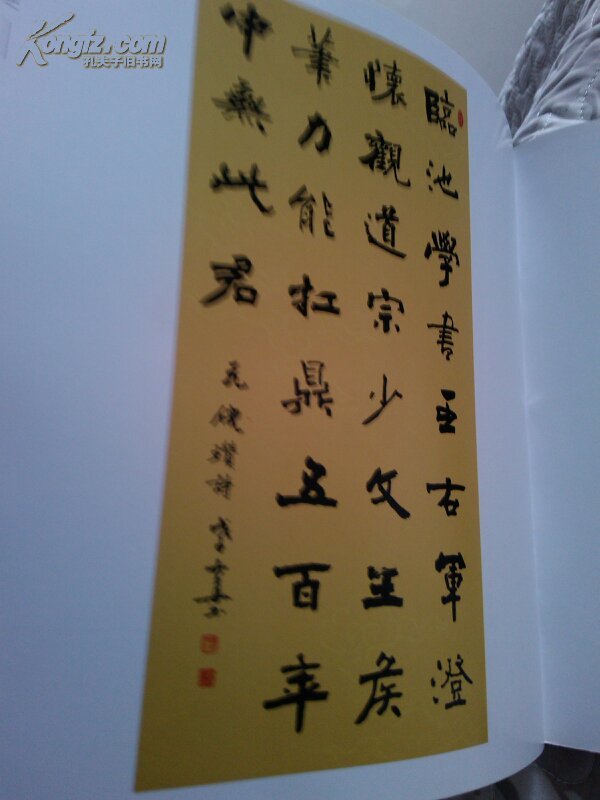 Kongfz.com
孔夫子旧书网
臨池學書王右軍澄
懷觀道宗少文王侯
筆力能扛鼎五百年
中無此君
元倪瓚詩